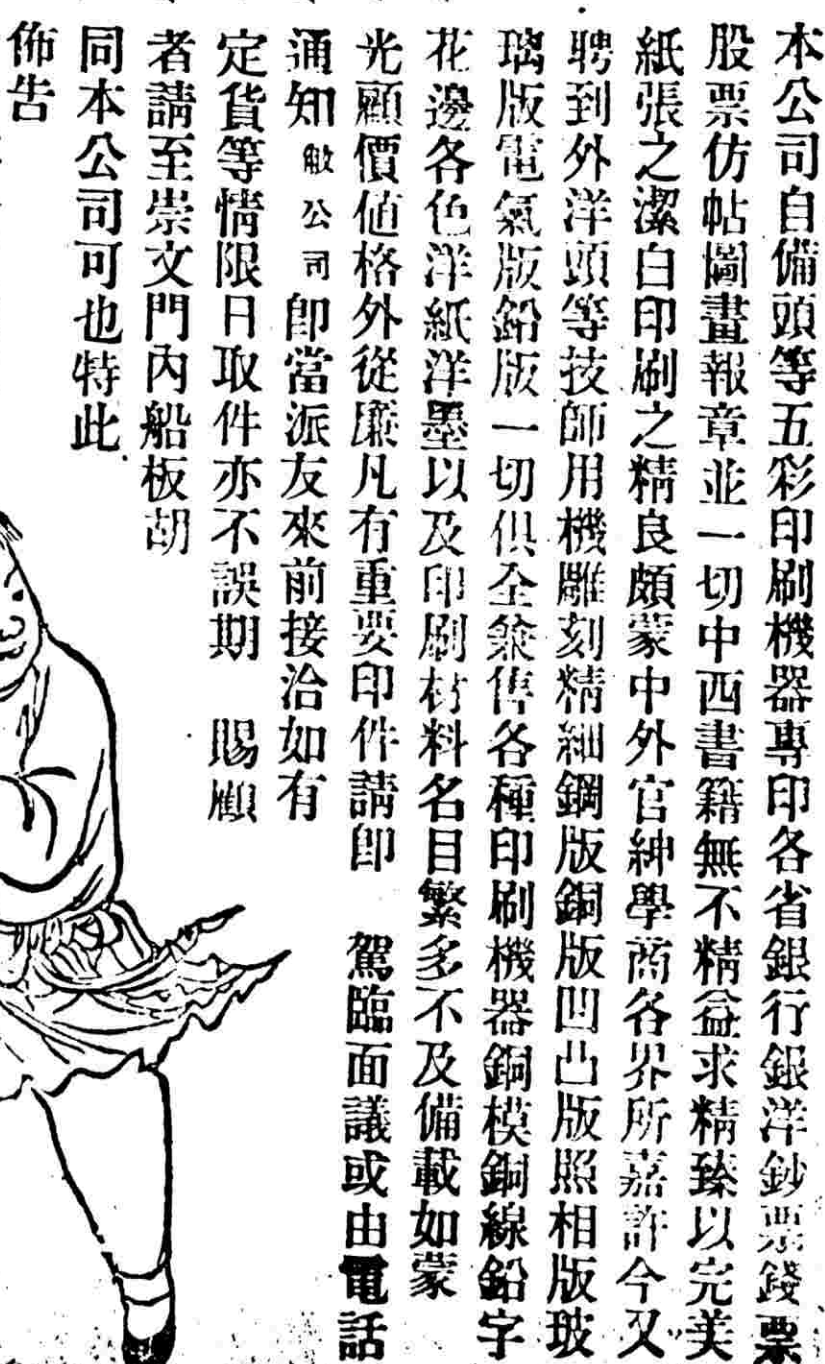 本公司自備頭等五彩印刷機器專印各省銀行銀洋鈔票錢票
股票仿帖圖畫報章並一切中西書籍無不精益求精臻以完美
紙張之潔白印刷之精良頗蒙中外官紳學商各界所嘉許今又
聘到外洋頭等技師用機雕刻精細鋼版銅版凹凸版照相版玻
璃版電氣版鉛版一切俱全兼售各種印刷機器銅模銅線鉛字
花邊各色洋紙洋墨以及印刷材料名目繁多不及備載如蒙
光顧價值格外從廉凡有重要印件請卽 駕臨面議或由電話
通知敝公司卽當派友來前接洽如有
定貨等情限日取件亦不誤期 賜顧
者請至崇文門內船板胡
同本公司可也特此
佈告